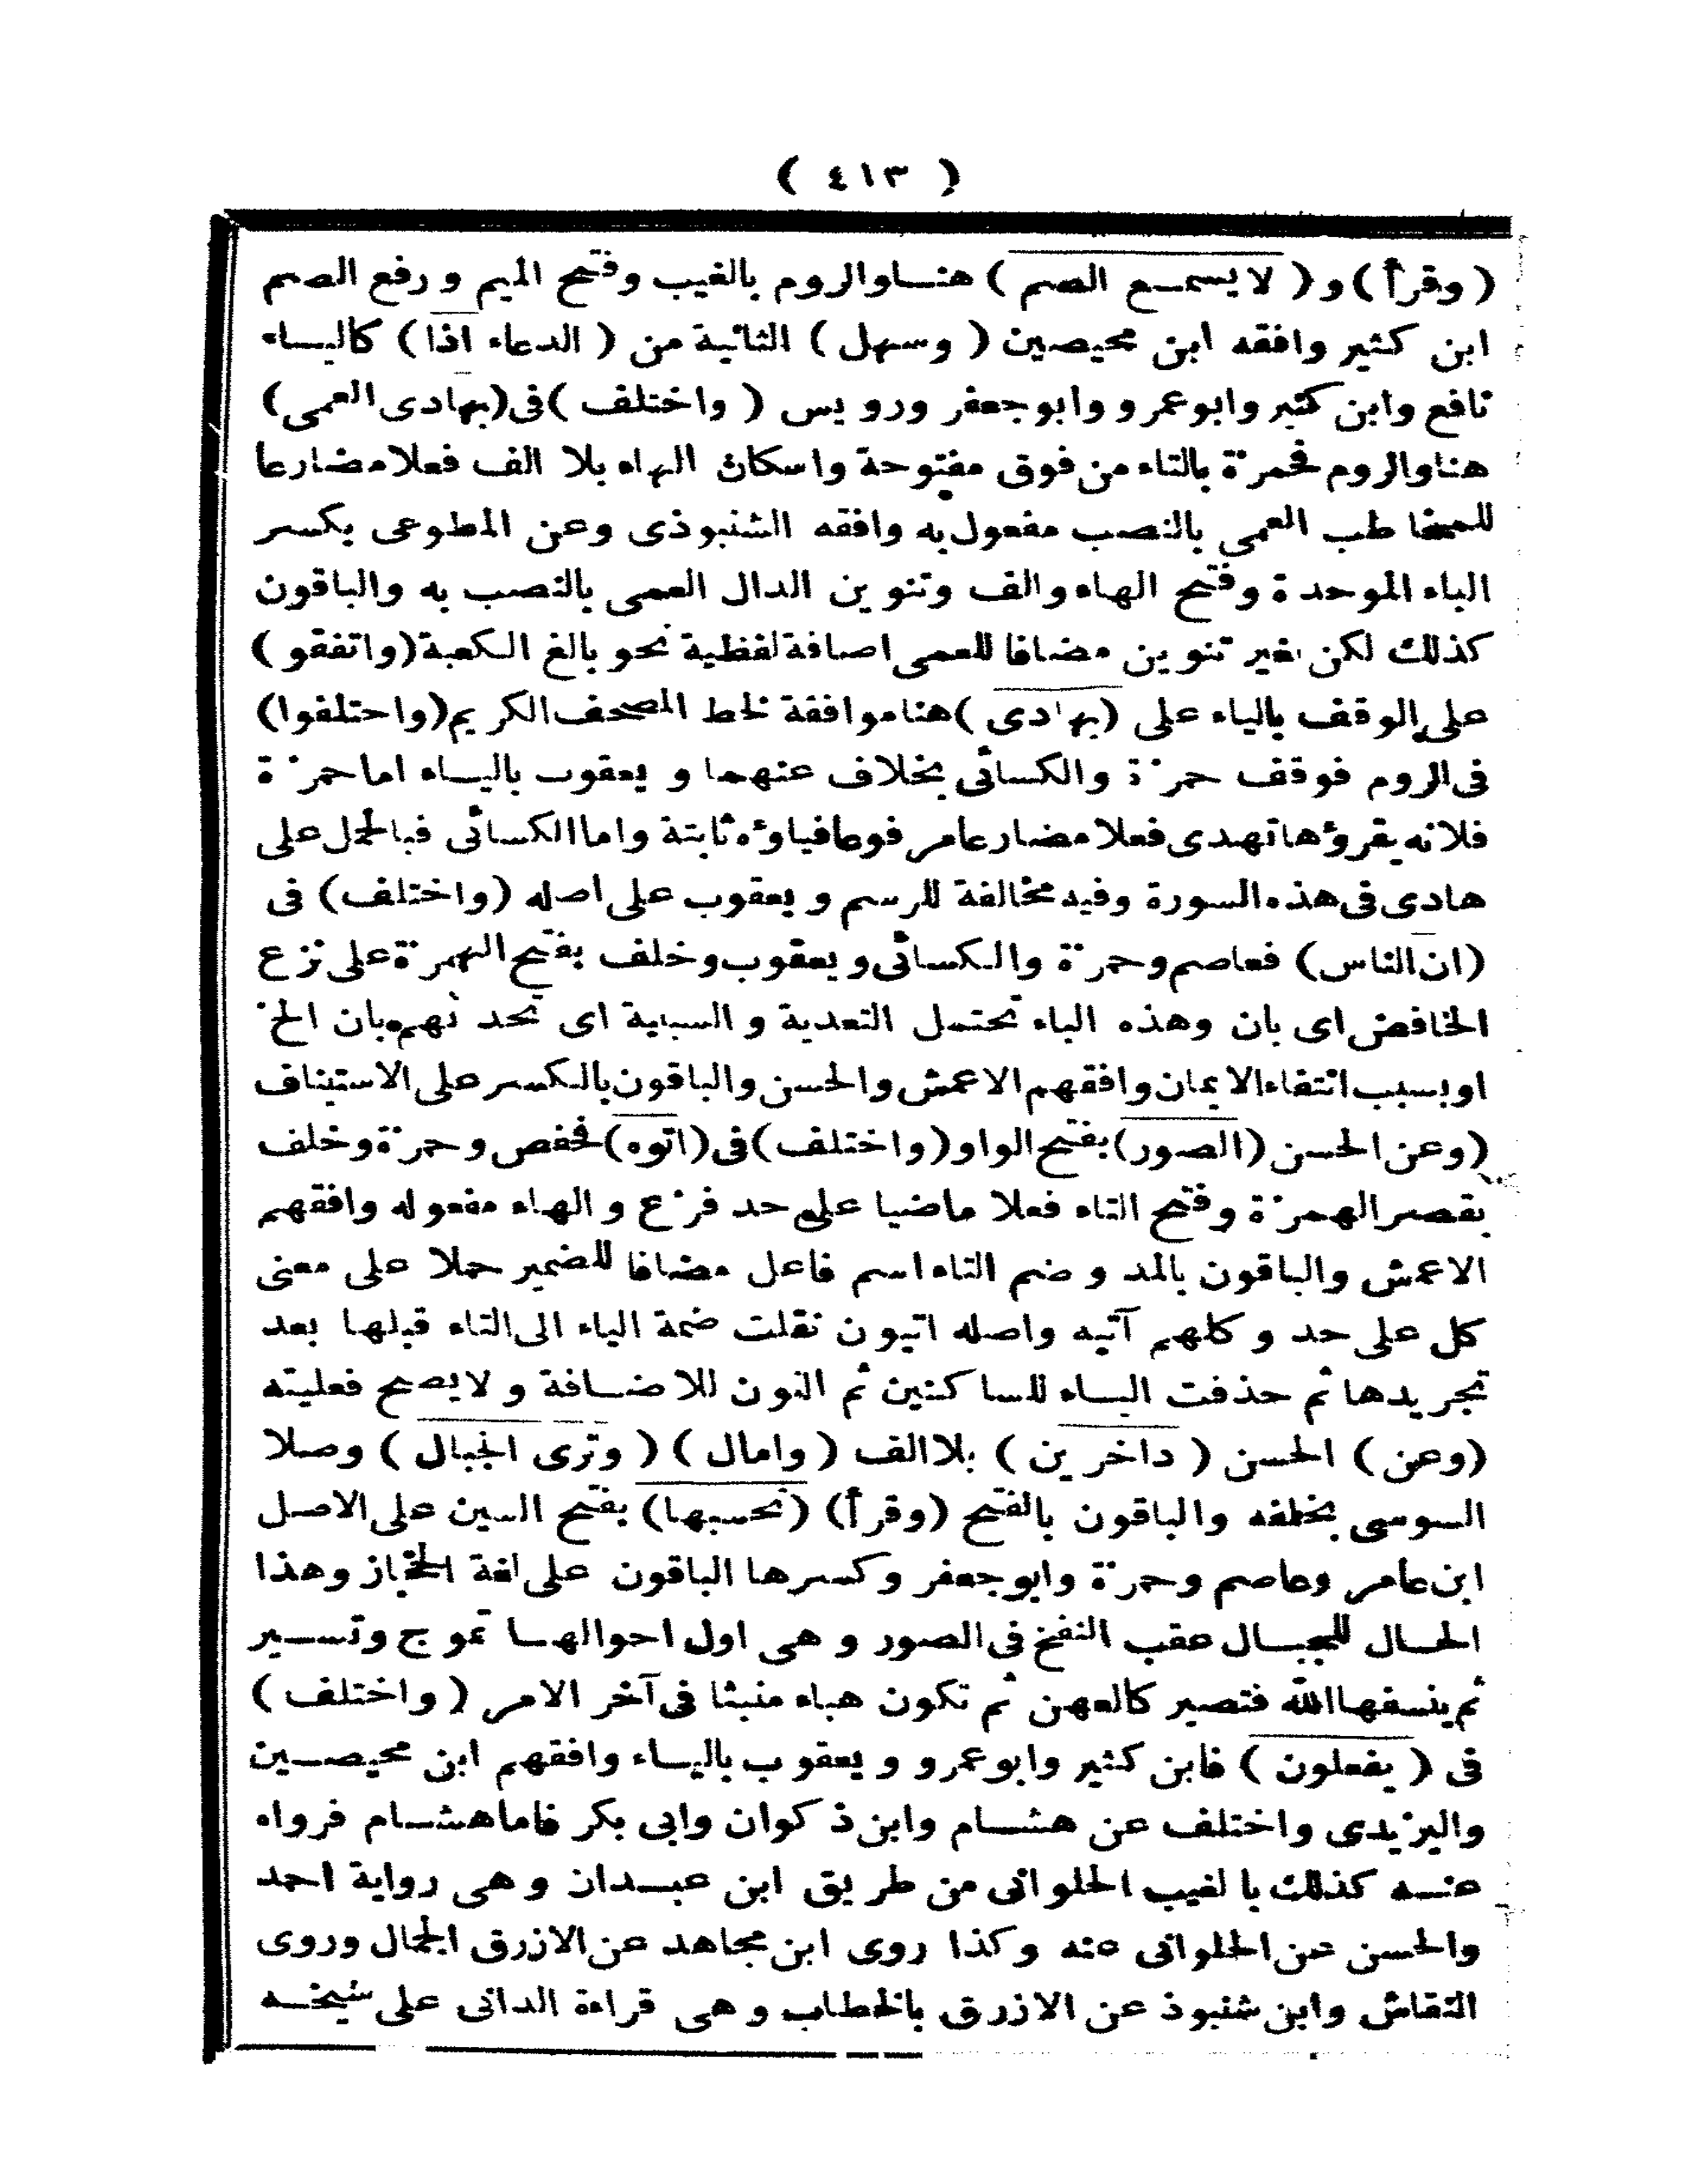 ( ٤١٣ )
( وقرأ ) و ( لا يسمع الصم ) هنا والروم بالغيب وفتح الميم ورفع الصم
ابن كثير وافقه ابن محيصين ( وسهل ) الثانية من ( الدعاء اذا ) كالياء
نافع وابن كثير وابو عمرو وابو جعفر ورويس ( واختلف ) فى ( بهادى العمى )
هنا والروم فحمزة بالتاء من فوق مفتوحة واسكان الهاء بلا الف فعلا مضارعا
للمخاطب العمى بالنصب مفعول به وافقه الشنبوذى وعن المطوعى بكسر
الباء الموحدة وفتح الهاء والف وتنوين الدال العمى بالنصب به والباقون
كذلك لكن بغير تنوين مضافا للعمى اضافة لفظية نحو بالغ الكعبة ( واتفقو )
على الوقف بالياء على ( بهادى ) هنا موافقة لخط المصحف الكريم ( واختلفوا )
فى الروم فوقف حمزة والكسائى بخلاف عنهما و يعقوب بالياء اما حمزة
فلانه يقرؤها تهدى فعلا مضارعا مرفوعا فياؤه ثابتة واما الكسائى فبالحمل على
هادى فى هذه السورة وفيه مخالفة للرسم و يعقوب على اصله ( واختلف ) فى
( ان الناس ) فعاصم وحمزة والكسائى و يعقوب وخلف بفتح الهمزة على نزع
الخافض اى بان وهذه الباء تحتمل التعدية و السببية اى تحدثهم بان الخ
او بسبب انتفاء الايمان وافقهم الاعمش والحسن والباقون بالكسر على الاستيناف
( وعن الحسن ( الصور ) بفتح الواو ( واختلف ) فى ( اتوه ) فحفص وحمزة وخلف
بقصر الهمزة وفتح التاء فعلا ماضيا على حد فزع و الهاء مفعوله وافقهم
الاعمش والباقون بالمد و ضم التاء اسم فاعل مضافا للضمير حملا على معنى
كل على حد و كلهم آتيه واصله اتيون نقلت ضمة الياء الى التاء قبلها بعد
تجريدها ثم حذفت الياء للساكنين ثم النون للاضافة و لا يصح فعليته
( وعن ) الحسن ( داخرين ) بلا الف ( وامال ) ( وترى الجبال ) وصلا
السوسى بخلفه والباقون بالفتح ( وقرأ ) ( تحسبها ) بفتح السين على الاصل
ابن عامر وعاصم وحمزة وابو جعفر وكسرها الباقون على لغة الحجاز وهذا
الحال للجبال عقب النفخ فى الصور و هى اول احوالها تموج وتسير
ثم ينسفها الله فتصير كالعهن ثم تكون هباء منبثا فى آخر الامر ( واختلف )
فى ( يفعلون ) فابن كثير وابو عمرو و يعقوب بالياء وافقهم ابن محيصين
واليزيدى واختلف عن هشام وابن ذكوان وابى بكر فاما هشام فرواه
عنه كذلك بالغيب الحلوانى من طريق ابن عبدان و هى رواية احمد
والحسن عن الحلوانى عنه وكذا روى ابن مجاهد عن الازرق الجمال وروى
النقاش وابن شنبوذ عن الازرق بالخطاب و هى قراءة الدانى على شيخه